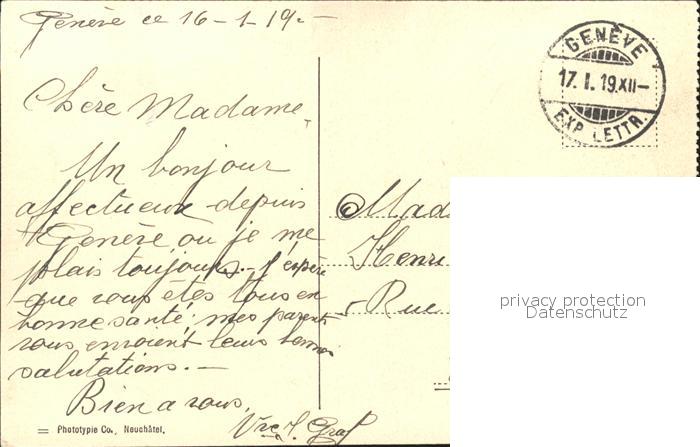 Genève ce 16-1-19.-
GENÈVE
17. I. 19.XII-
EXP. LETTR.
Chère Madame,
Un bonjour
affectueux depuis
Genève où je me
plais toujours.- J'espère
que vous êtes tous en
bonne santé, mes parents
vous envoient leurs bonnes
salutations.-
Bien a vous.
Graf
Mad
Henri
Rue
privacy protection
Datenschutz
Phototypie Co., Neuchâtel.